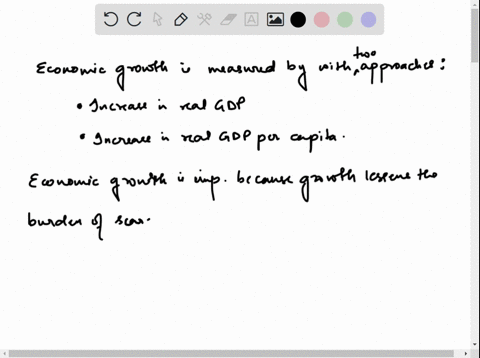 Economic growth is measured by with two approaches:
• Increase in real GDP
• Increase in real GDP per capita.
Economic growth is imp. because growth lessens the
burden of scar.